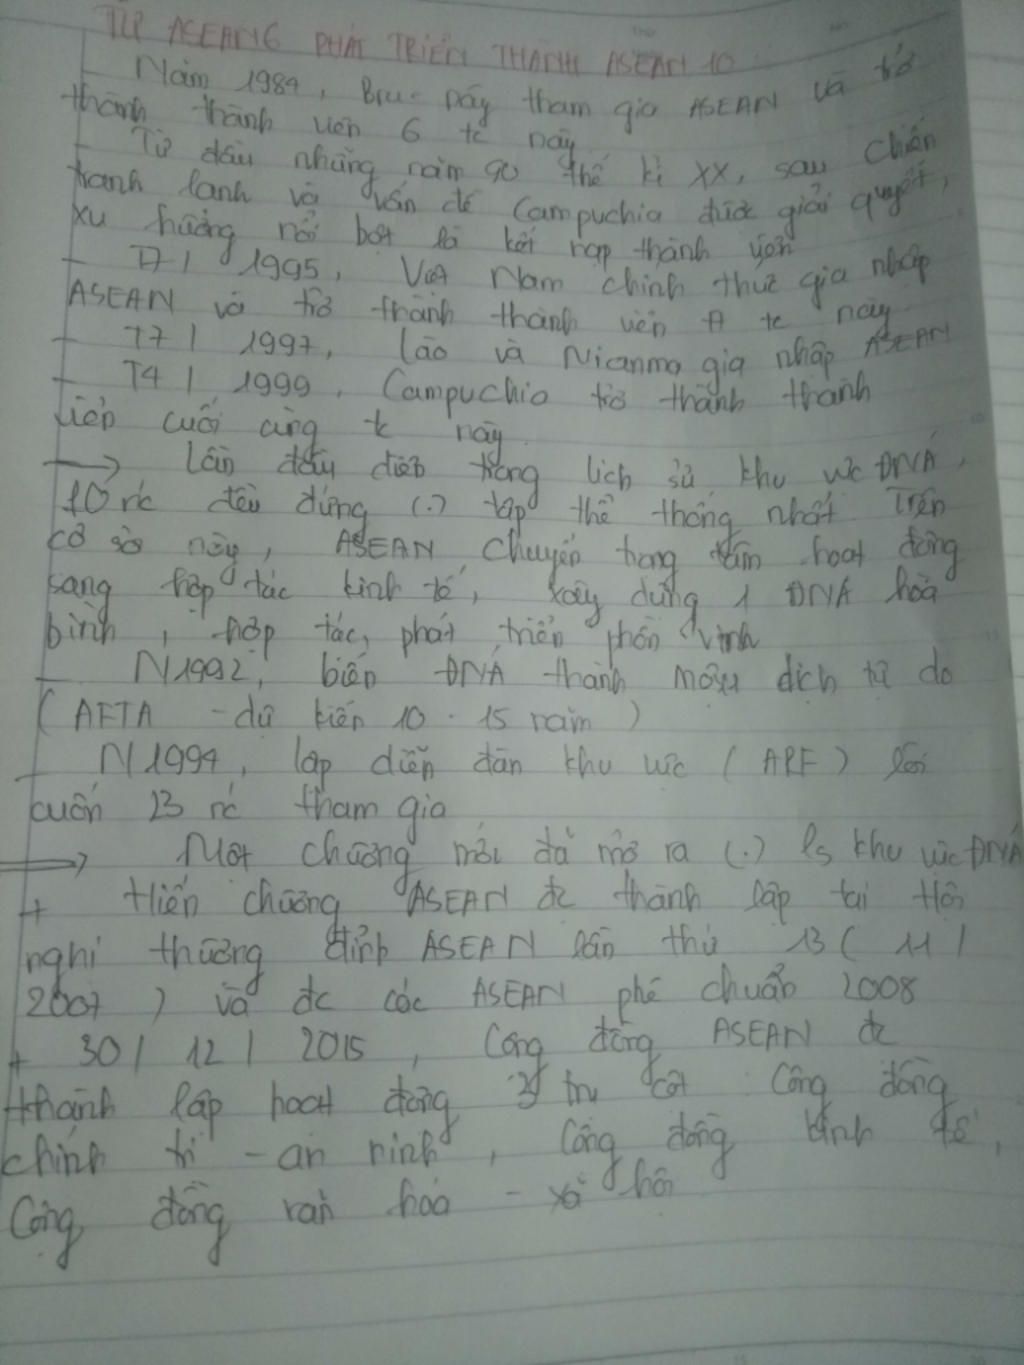 TỪ ASEAN6 PHÁT TRIỂN THÀNH ASEAN 10
- Năm 1984, Bru- nây tham gia ASEAN và trở
thành thành viên 6 tc này
- Từ đầu những năm 90 thế kỉ XX, sau chiến
tranh lạnh và vấn đề Campuchia được giải quyết,
xu hướng nổi bật là kết nạp thành viên
- T7 / 1995, Việt Nam chính thức gia nhập
ASEAN và trở thành thành viên 7 tc này
- T7 / 1997, Lào và Mianma gia nhập ASEAN
- T4 / 1999, Campuchia trở thành thành
viên cuối cùng tc này.
→ Lần đầu tiên trong lịch sử khu vực ĐNÁ,
10 nc đều đứng (.) tập thể thống nhất. Trên
cơ sở này, ASEAN chuyển trọng tâm hoạt động
sang hợp tác kinh tế, xây dựng 1 ĐNÁ hòa
bình, hợp tác, phát triển phồn vinh
- N1992, biến ĐNÁ thành mậu dịch tự do
(AFTA - dự kiến 10 - 15 năm)
- N1994, lập diễn đàn khu vực (ARF) lôi
cuốn 23 nc tham gia
⇒ Một chương mới đã mở ra (.) ls khu vực ĐNÁ
+ Hiến chương ASEAN đc thành lập tại Hội
nghị thượng đỉnh ASEAN lần thứ 13 ( 11 /
2007 ) và đc các ASEAN phê chuẩn 2008
+ 30 / 12 / 2015, Cộng đồng ASEAN đc
thành lập hoạt động 3 trụ cột Cộng đồng
chính trị - an ninh, Cộng đồng kinh tế,
Cộng đồng văn hóa - xã hội